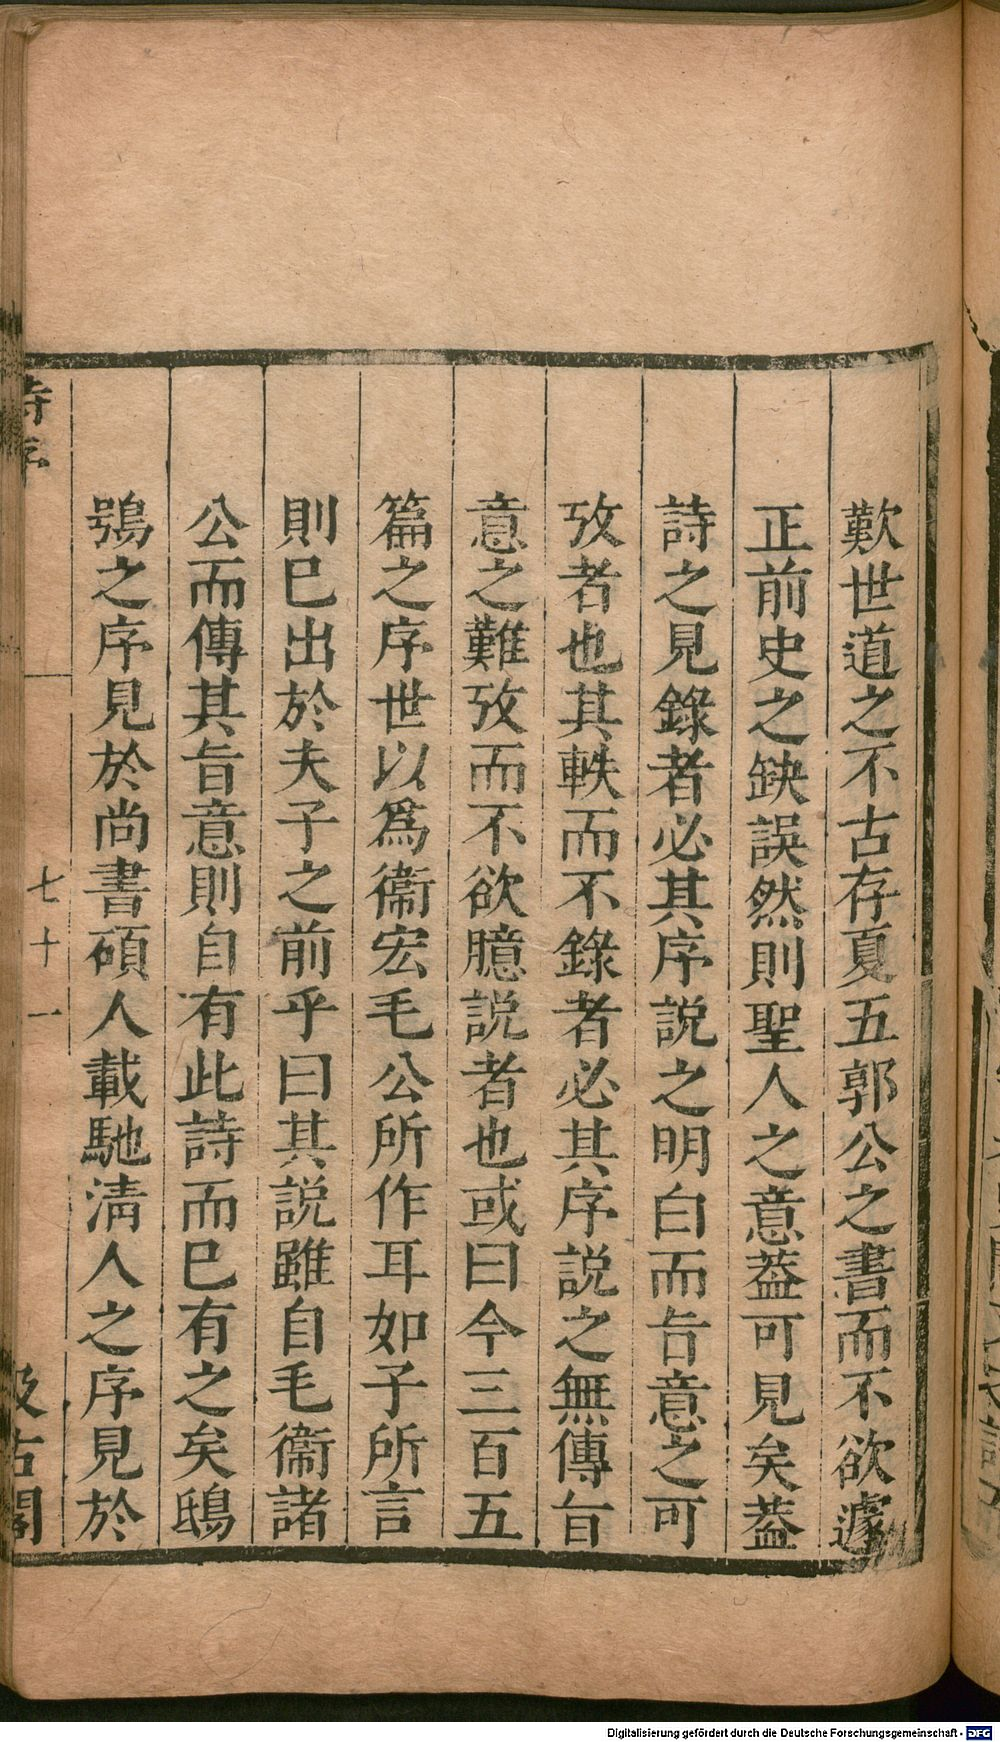 歎世道之不古存夏五郭公之書而不欲遽
正前史之缺誤然則聖人之意葢可見矣葢
詩之見錄者必其序説之明白而㫖意之可
攷者也其軼而不錄者必其序説之無傳㫖
意之難攷而不欲臆説者也或曰今三百五
篇之序世以爲衞宏毛公所作耳如子所言
則巳出於夫子之前乎曰其説雖自毛衞諸
公而傳其㫖意則自有此詩而巳有之矣鴟
鴞之序見於尚書碩人載馳淸人之序見於
詩序
七十一
汲古閣
Digitalisierung gefördert durch die Deutsche Forschungsgemeinschaft - DFG